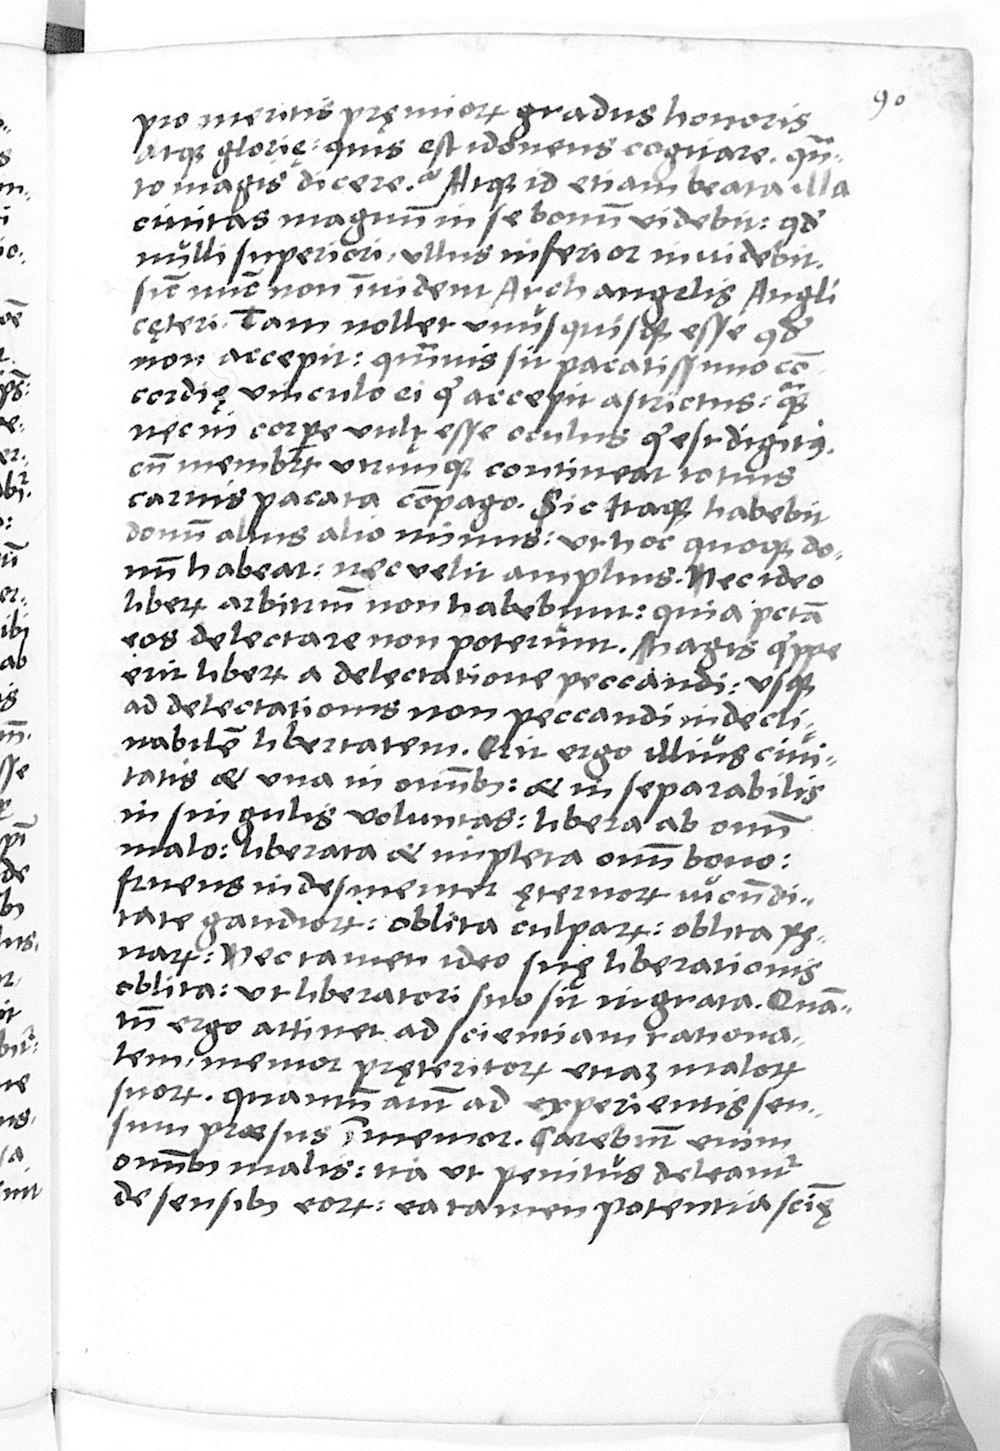 90
pro meritis pręmioꝝ gradus honoris
atqꝫ glorię: quis est idoneus cogitare. quā-
to magis dicere.? Atqꝫ id etiam beata illa
ciuitas magnū in se bonū videbit: qd̄
nulli superiori, ullus inferior inuidebit.
sic̄ nūc non īuident Archangelis Angli
cęteri. Tam nollet vnusquisqꝫ esse qd̄
non accepit: quāuis sit pacatissimo cō
cordię vinculo ei qͥ accepit astrictus: quā
nec in corpe vult esse oculus qͥ est digitꝰ.
cū membꝝ vtrunqꝫ contineat totius
carnis pacata cōpago. Sic itaqꝫ habebit
donū alius alio minus: vt hoc quoqꝫ do-
nū habeat: nec velit amplius. Nec ideo
liberꝝ arbitriū non habebunt: quia pctā
eos delectare non poterunt. Magis qͥppe
erit liberꝝ a delectatione peccandi: vsqꝫ
ad delectationis non peccandi indecli-
nabilē libertatem. Erit ergo illius ciui-
tatis & vna in omībꝫ: & inseparabilis
in singulis voluntas: libera ab omī
malo: liberata & impleta omī bono:
fruens indesinenter ęternoꝝ iucūdi-
tate gaudioꝝ: oblita culpaꝝ: oblita pę-
naꝝ: Nec tamen ideo suę liberationis
oblita: vt liberatori suo sit ingrata. Quā-
tū ergo attinet ad scientiam rationa-
lem, memor pręteritoꝝ etiaꝫ maloꝝ
suoꝝ. quantū autē ad experientis sen-
sum prorsus īmemor. Carebūt enim
omībꝫ malis: ita vt penitus deleantᷣ
de sensibꝫ eoꝝ: ea tamen potentia sciē